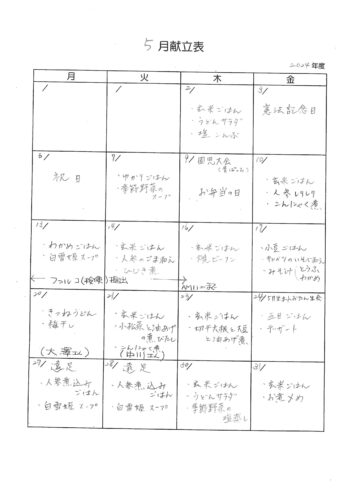 5月献立表
2024年度
月 火 木 金
1/ 1/ 2/ 3/
・玄米ごはん
・うどんサラダ
・塩こんぶ
憲法記念日
6/ 7/ 9/ 10/
祝日
・ゆかりごはん
・季節野菜の
スープ
園児大会
お弁当の日
・玄米ごはん
・人参しりしり
・こんにゃく煮
13/ 16/ 17/
・わかめごはん
・白雪姫スープ
・玄米ごはん
・人参のごまあえ
・ひじき煮
・玄米ごはん
・焼ビーフン
・小豆ごはん
・みそ汁
とうふ
わかめ
20/ 21/ 23/ 24/
・きつねうどん
・梅干し
(大澤さん)
・玄米ごはん
・小松菜と油あげ
の煮びたし
・こんにゃく煮
(中川さん)
・玄米ごはん
・切干大根と大豆
と油あげ煮
・五目ごはん
・デザート
27/ 遠足
・人参煮込み
ごはん
・白雪姫スープ
28/ 遠足
・人参煮込み
ごはん
・白雪姫スープ
30/
・玄米ごはん
・うどんサラダ
・季節野菜の
塩蒸し
31/
・玄米ごはん
・お煮〆め